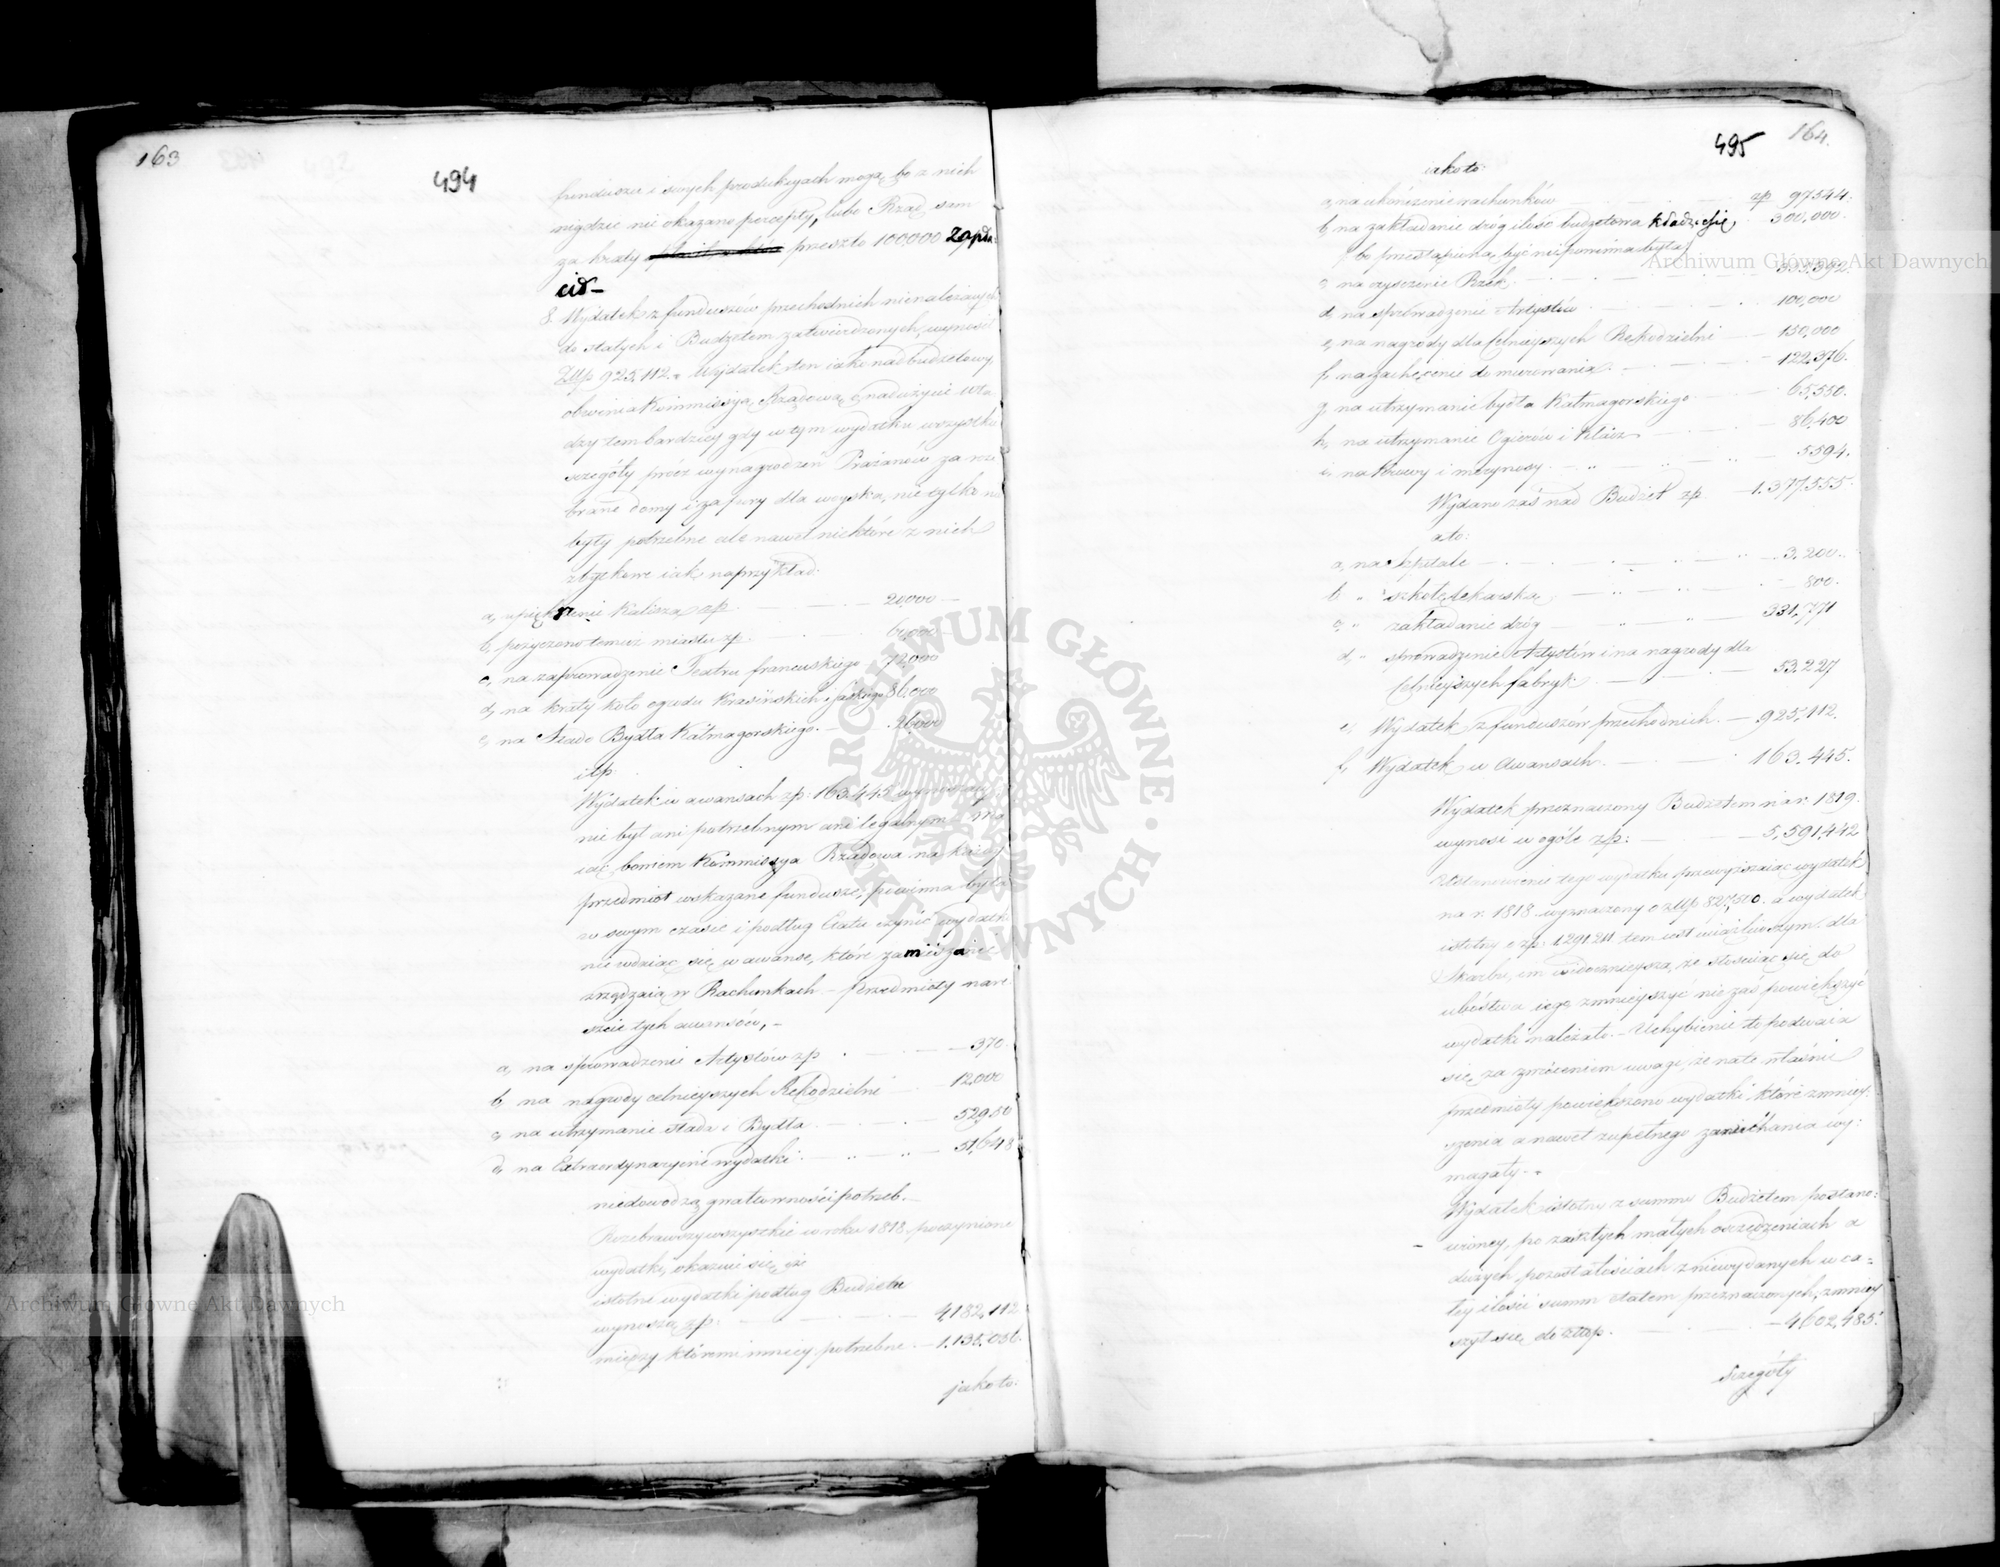 163
494
funduszu i swych produkcyach mogą, bo z nich
nigdzie nie okazano percepty, lubo Rząd sam
za kraty przeszło 100000 zapła-
cił –
8. Wydatek z funduszów przechodnich nienależących
do stałych i Budżetem zatwierdzonych, wynosi
Złłp 925,112. Wydatek ten iako nadbudżetowy
obwinia Kommissyą Rządową o nadużycie wła
dzy tembardziey gdy w tym wydatku wszystkie
szczegóły prócz wynagrodzeń Prażanów za roze
brane domy i za fury dla woyska, nie tylko nie
były potrzebne ale nawet niektóre z nich
zbytkowe iak naprzykład:
a, upięknienie Kalisza zp. 20,000 –
b, pożyczono temuż miastu zp. 60,000 –
c, na zaprowadzenie Teatru francuskiego 72,000
d, na kraty koło ogrodu Krasińskich i Saskiego 86,000
e, na Stado Bydła Kałmagorskiego. 26,000
itp:
Wydatek w awansach zp: 163,445 wynoszący
nie był ani potrzebnym ani legalnym – Ma
iąc bowiem Kommissya Rządowa na każdy
przedmiot wskazane fundusze, powinna była
w swym czasie i podług Etatu czynić wydatki
nie wdaiąc się w awanse, które zamieszanie
zrządzaią w Rachunkach – Przedmioty nare
szcie tych awansów, –
a, na sprowadzenie Artystów zp 370.
b, na nagrody celnieyszych Rękodzielni 12,000
c, na utrzymanie stada i Bydła 529,50
d, na Extraordynaryine wydatki 51,648
niedowodzą gwałtowności potrzeb. –
Rozebrawszy wszystkie w roku 1818 poczynione
wydatki, okazuie się, iż
istotne wydatki podług Budżetu
wynoszą zp: 4,182,112
między któremi mniey potrzebne – 1,135,056.
jakoto:
495
164.
iakoto:
a, na ukończenie rachunków zp 97544.
b, na zakładanie dróg ilość budżetowa kładzie się 300,000.
bo przestąpioną być nie powinna była
c, na czyszczenie Rzek 355,392.
d, na sprowadzenie Artystów 100,000
e, na nagrody dla celnieyszych Rękodzielni 150,000
f, na zachęcenie do murowania 122,376.
g, na utrzymanie bydła Kałmagorskiego 65,550.
h, na utrzymanie Ogierów i Klacz 86,400
i, na Krowy i merynosy 5594.
Wydano zaś nad Budżet zp – 1,377,555.
a to:
a, na szpitale 3,200.
b " szkołę lekarską 800.
c, " zakładanie dróg 231,771
d, " sprowadzenie Artystów i na nagrody dla
celnieyszych fabryk 53,227
e, Wydatek z funduszów przechodnich. – 925,112.
f, Wydatek w Awansach. 163,445.
Wydatek przeznaczony Budżetem na r. 1819.
wynosi w ogóle zp: 5,591,442
Ustanowienie tego wydatku przewyższaiąc wydatek
na r. 1818 wyznaczony o złłp 827,500. a wydatek
istotny o zp: 1291211 tem iest uciążliwszym dla
Skarbu, im widoczniejsza, że stosuiąc się do
ubóstwa iego zmnieyszyć nie zaś powiększyć
wydatki należało. – Uchybienie to podwaia
się za zwróceniem uwagi że na te właśnie
przedmioty powiększono wydatki które zmniey-
szenia a nawet zupełnego zaniechania wy:
magały. –
Wydatek istotny z summy Budżetem postano:
wioney, po zaszłych małych oszczędzeniach a
dużych pozostałościach z niewydanych w ca=
łey ilości summ etatem przeznaczonych, zmniey
szył się do złłp. – 4602,485.
szczegóły
Archiwum Główne Akt Dawnych
Archiwum Główne Akt Dawnych
ARCHIWUM GŁÓWNE AKT DAWNYCH